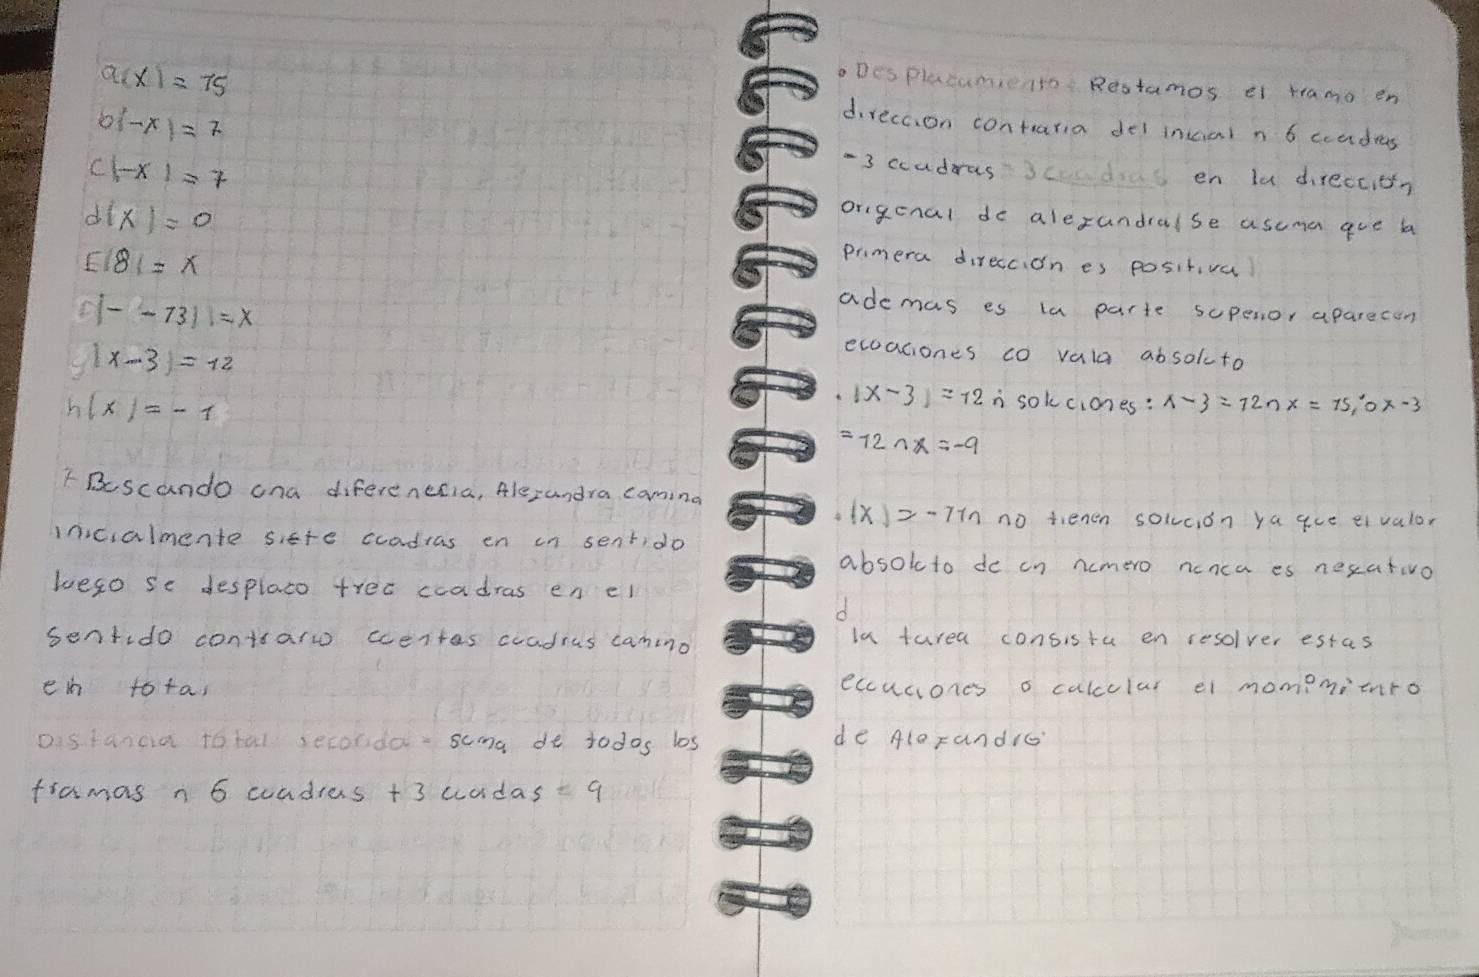 a(x) = 15
b(-x) = 7
c(-x) = 7
d(x) = 0
E(8) = x
|- -73|| = x
|x-3) = 12
h(x) = -1
Buscando una diferenecia, Alexandra camina
inicialmente siete cuadras en un sentido
luego se desplaco trec cuadras en el
sentido contrario cuentas cuadras camino
en total
Distancia total recorrida = suma de todos los
tramas n 6 cuadras + 3 cuadas = 9
• Desplacumiento: Restamos el tramo en
direccion contraria del inicial n 6 cuadras
-3 cuadras = 3 cuadras en la direcciton
origenal de alexandra(se asuma que la
primera dirección es positiva)
ademas es la parte superior aparecen
ecuaciones co vala absoluto
. |x-3) = 12 n soluciones: x-3 = 12 n x = 15, o x-3
= 12 n x = -9
. (x) = -11n no tienen solución ya que el valor
absoluto de un numero nunca es negativo
d
la tarea consista en resolver estas
ecuaciones o calcular el
de Alexandra